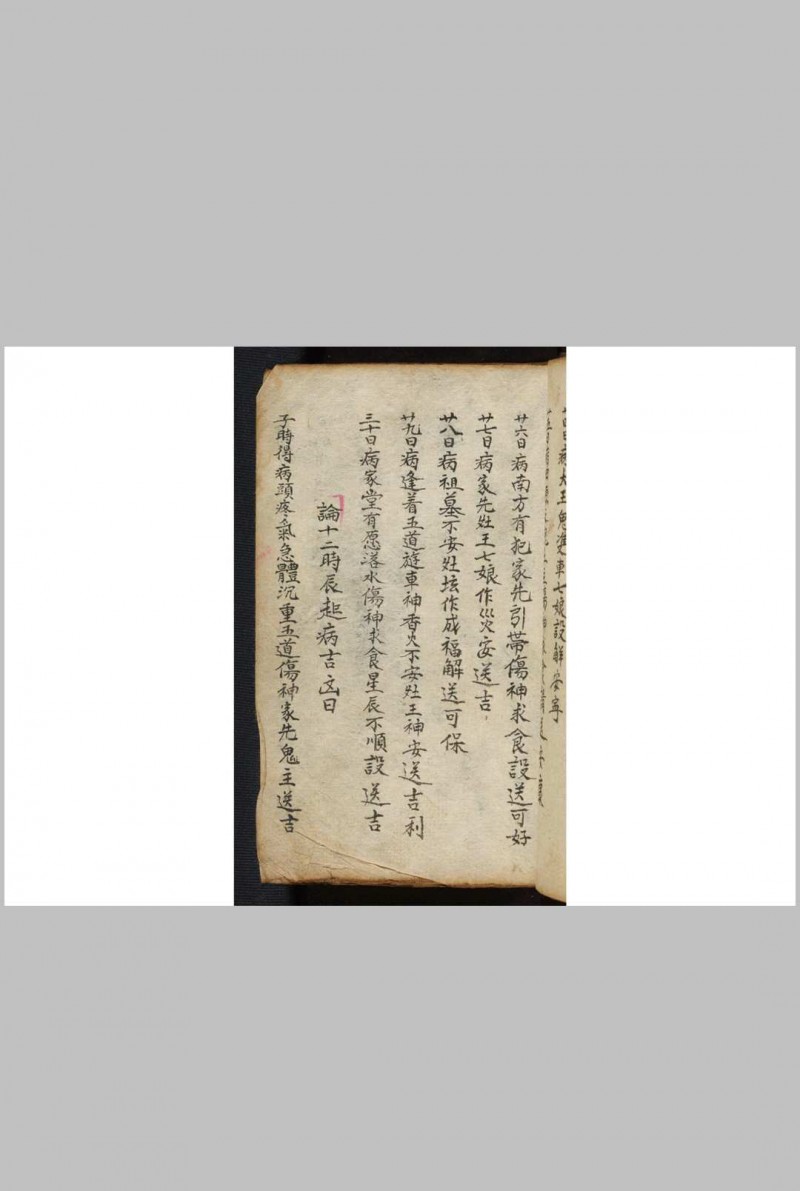 廿六日病南方有犯家先引帶傷神求食設送可好
廿七日病家先灶王七娘作災安送吉
廿八日病祖墓不安灶坛作成福解送可保
廿九日病逢着五道遊車神香火不安灶王神安送吉利
三十日病家堂有愿落水傷神求食星辰不順設送吉
論十二時辰起病吉凶日
子時得病頭疼氣急體沉重五道傷神家先鬼主送吉